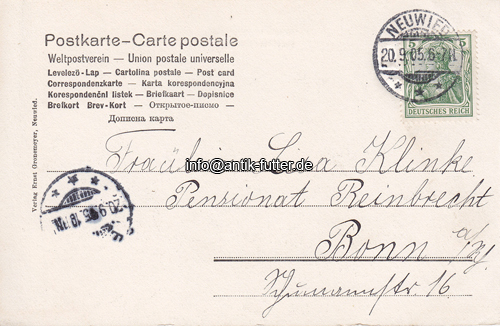 Postkarte – Carte postale
Weltpostverein — Union postale universelle
Levelező-Lap — Cartolina postale — Post card
Correspondenzkarte — Karta korespondencyjna
Korespondenční listek — Briefkaart — Dopisnice
Brelkort Brev-Kort — Открытое-письмо —
Дописна карта
NEUWIED
20.9.05.6-7N.
5 5
DEUTSCHES REICH
Verlag Ernst Gronemeyer, Neuwied.
info@antik-futter.de
20.9.05.
Fräulein Lisa Klinke
Pensionat Reinbrecht
Bonn a/Rh.
Schumannstr. 16